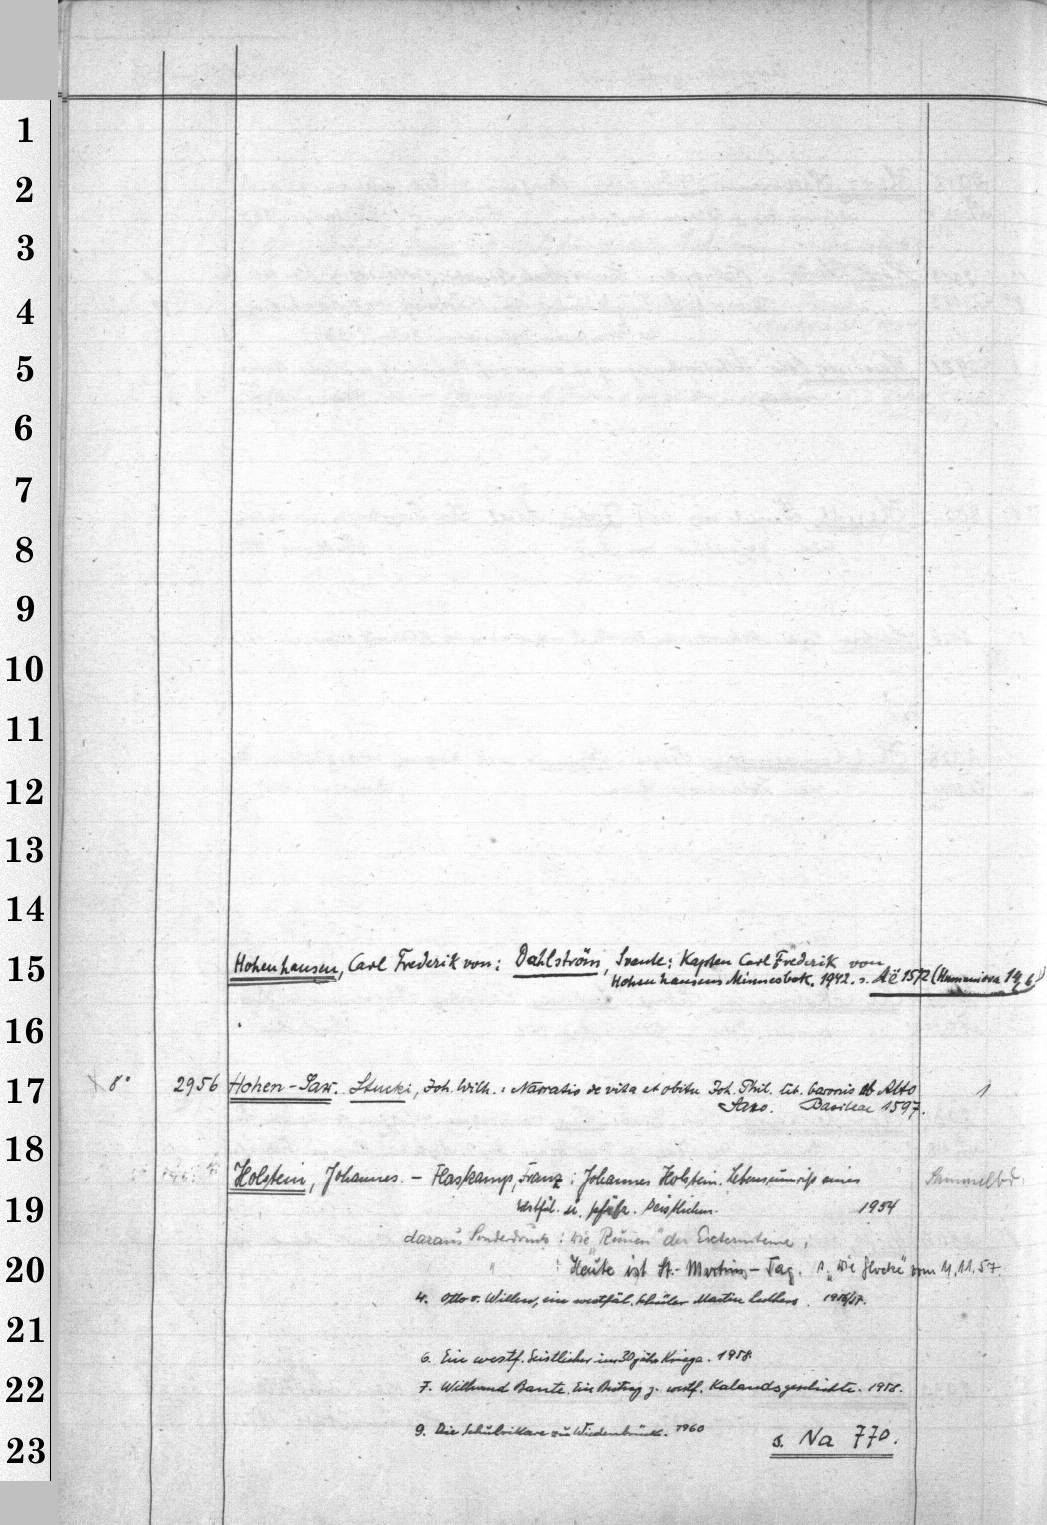 1
2
3
4
5
6
7
8
9
10
11
12
13
14
15 Hohenhausen, Carl Frederik von: Dahlström, Svante: Kapten Carl Frederik von
Hohenhausens Minnesbok. 1942. s. Ač 1572 (Humaniora 14, 6)
16
17 8° 2956 Hohen-Sax. Stucki, Joh. Wilh.: Narratio de vita et obitu Joh. Phil. lib. baronis ab Alto 1
Saxo. Basileae 1597.
18 Holstein, Johannes. - Flaskamp, Franz: Johannes Holstein. Lebensumriß eines Sammelbd.
19 westfäl. u. Geistlichen. 1954
daraus Sonderdruck: Die "Runen" der Externsteine;
20 " : Heute ist St.-Martins-Tag. s. "Die Glocke" vom 11.11.57.
4. Otto v. ein westfäl. Schüler Martin Luthers. 1956/57.
21
6. Ein westf. Geistlicher im 30jähr. Kriege. 1958.
22 7. Wilbrand Bante. Ein Beitrag z. westf. Kalandsgeschichte. 1958.
23 9. Die Schulvikare zu Wiedenbrück. 1960
s. Na 770.